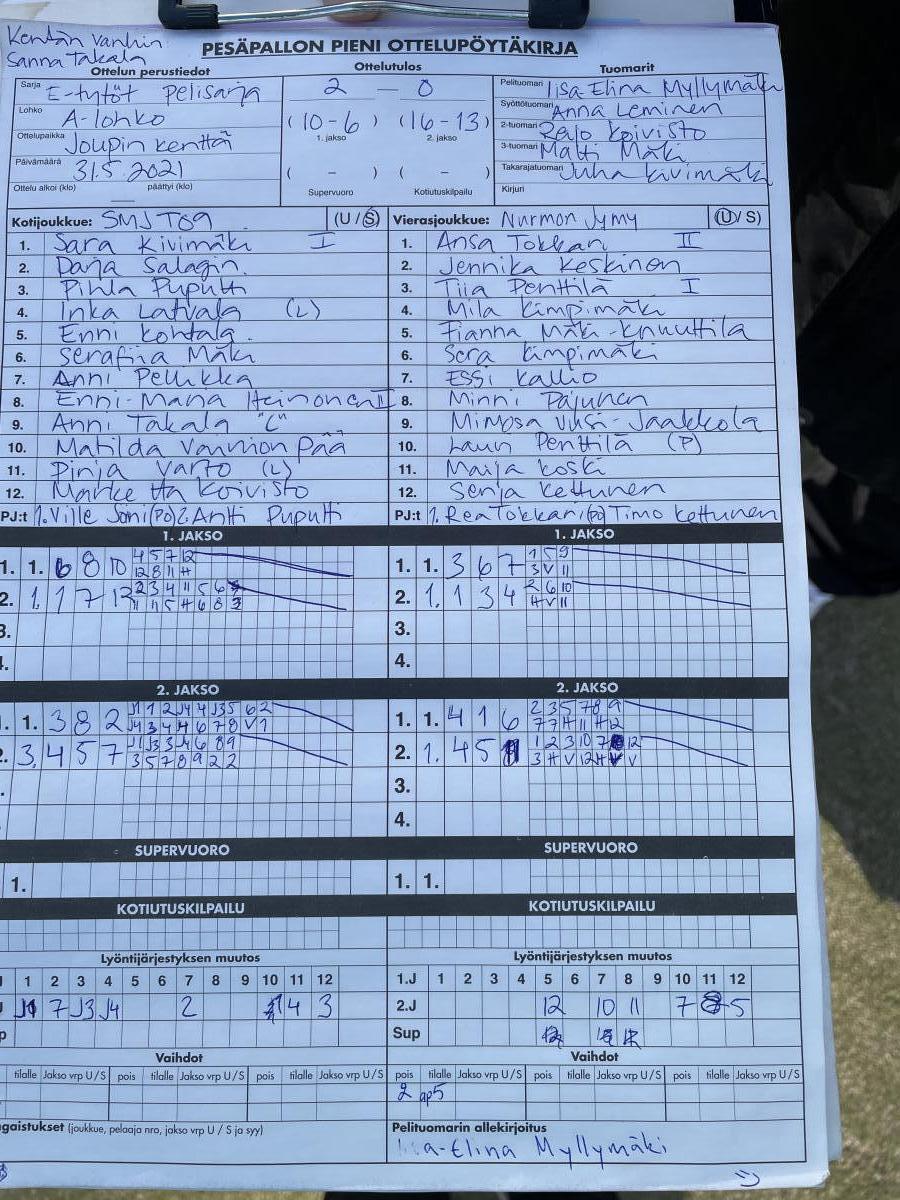 Kentän vanhin:
Sanna Takala
PESÄPALLON PIENI OTTELUPÖYTÄKIRJA
Ottelun perustiedot Ottelutulos Tuomarit
Sarja E-tytöt pelisarja
Lohko A-lohko
Ottelupaikka Joupin kenttä
Päivämäärä 31.5.2021
Ottelu alkoi (klo) päättyi (klo)
2 - 0
(10-6) (16-13)
1. jakso 2. jakso
( - ) ( - )
Supervuoro Kotiutuskilpailu
Pelituomari Iisa Elina Myllymäki
Syöttötuomari Anna Leminen
2-tuomari Reijo Koivisto
3-tuomari Matti Mäki
Takarajatuomari Juha Kivimäki
Kirjuri
Kotijoukkue: SMJ T09 (U / S)
1. Sara Kivimäki I
2. Darja Salagin.
3. Pihla Puputti
4. Inka Latvala (L)
5. Enni Kohtala.
6. Serafiia Mäki
7. Anni Pellikka
8. Enni-Maria Heinonen II
9. Anni Takala "C"
10. Matilda Vainionpää
11. Pinja Varto (L)
12. Marketta Koivisto
PJ:t 1. Ville Joni (PO) 2. Antti Puputti
Vierasjoukkue: Nurmon Jymy (U / S)
1. Ansa Tokkari II
2. Jennika Keskinen
3. Tiia Penttilä I
4. Mila Kimpimäki
5. Fianna Mäki-Knuuttila
6. Sara Kimpimäki
7. Essi Kallio
8. Minni Pajunen
9. Mimosa Uusi-Jaakkola
10. Lauri Penttilä (P)
11. Maija Koski
12. Senja Kettunen
PJ:t 1. Rea Tokkari (PO) Timo Kettunen
1. JAKSO 1. JAKSO
1. 1. 6 8 10 4 5 7 12
12 8 11 H
2. 1. 1 7 12 2 3 4 11 5 6
11 11 5 H 6 8 3
3.
4.
1. 1. 3 6 7 1 5 9
3 V 11
2. 1. 1 3 4 2 6 10
H V 11
3.
4.
2. JAKSO 2. JAKSO
1. 1. 3 8 2 J1 1 2 J4 4 J3 5 6 2
J4 3 4 4 6 7 8 V 1
2. 3. 4 5 7 J1 J3 3 J4 6 8 9
3 5 7 8 9 2 2
1. 1. 4 1 6 2 3 5 7 8 9
7 7 H 11 H 12
2. 1. 4 5 11 1 2 3 10 7 12
3 H V 12 H V V
3.
4.
SUPERVUORO SUPERVUORO
1.
1. 1.
KOTIUTUSKILPAILU KOTIUTUSKILPAILU
Lyöntijärjestyksen muutos Lyöntijärjestyksen muutos
1 2 3 4 5 6 7 8 9 10 11 12
J1 7 J3 J4 2 1 4 3
1.J 1 2 3 4 5 6 7 8 9 10 11 12
2.J 12 10 11 7 8 5
Sup
Vaihdot Vaihdot
tilalle Jakso vrp U / S pois tilalle Jakso vrp U / S pois tilalle Jakso vrp U / S
pois tilalle Jakso vrp U / S pois tilalle Jakso vrp U / S pois tilalle Jakso vrp U / S
2 ap5
ngaistukset (joukkue, pelaaja nro, jakso vrp U / S ja syy)
Pelituomarin allekirjoitus
Iisa-Elina Myllymäki